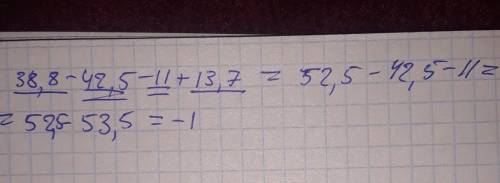 38,8 - 42,5 - 11 + 13,7 = 52,5 - 42,5 - 11 =
= 52,5 - 53,5 = -1